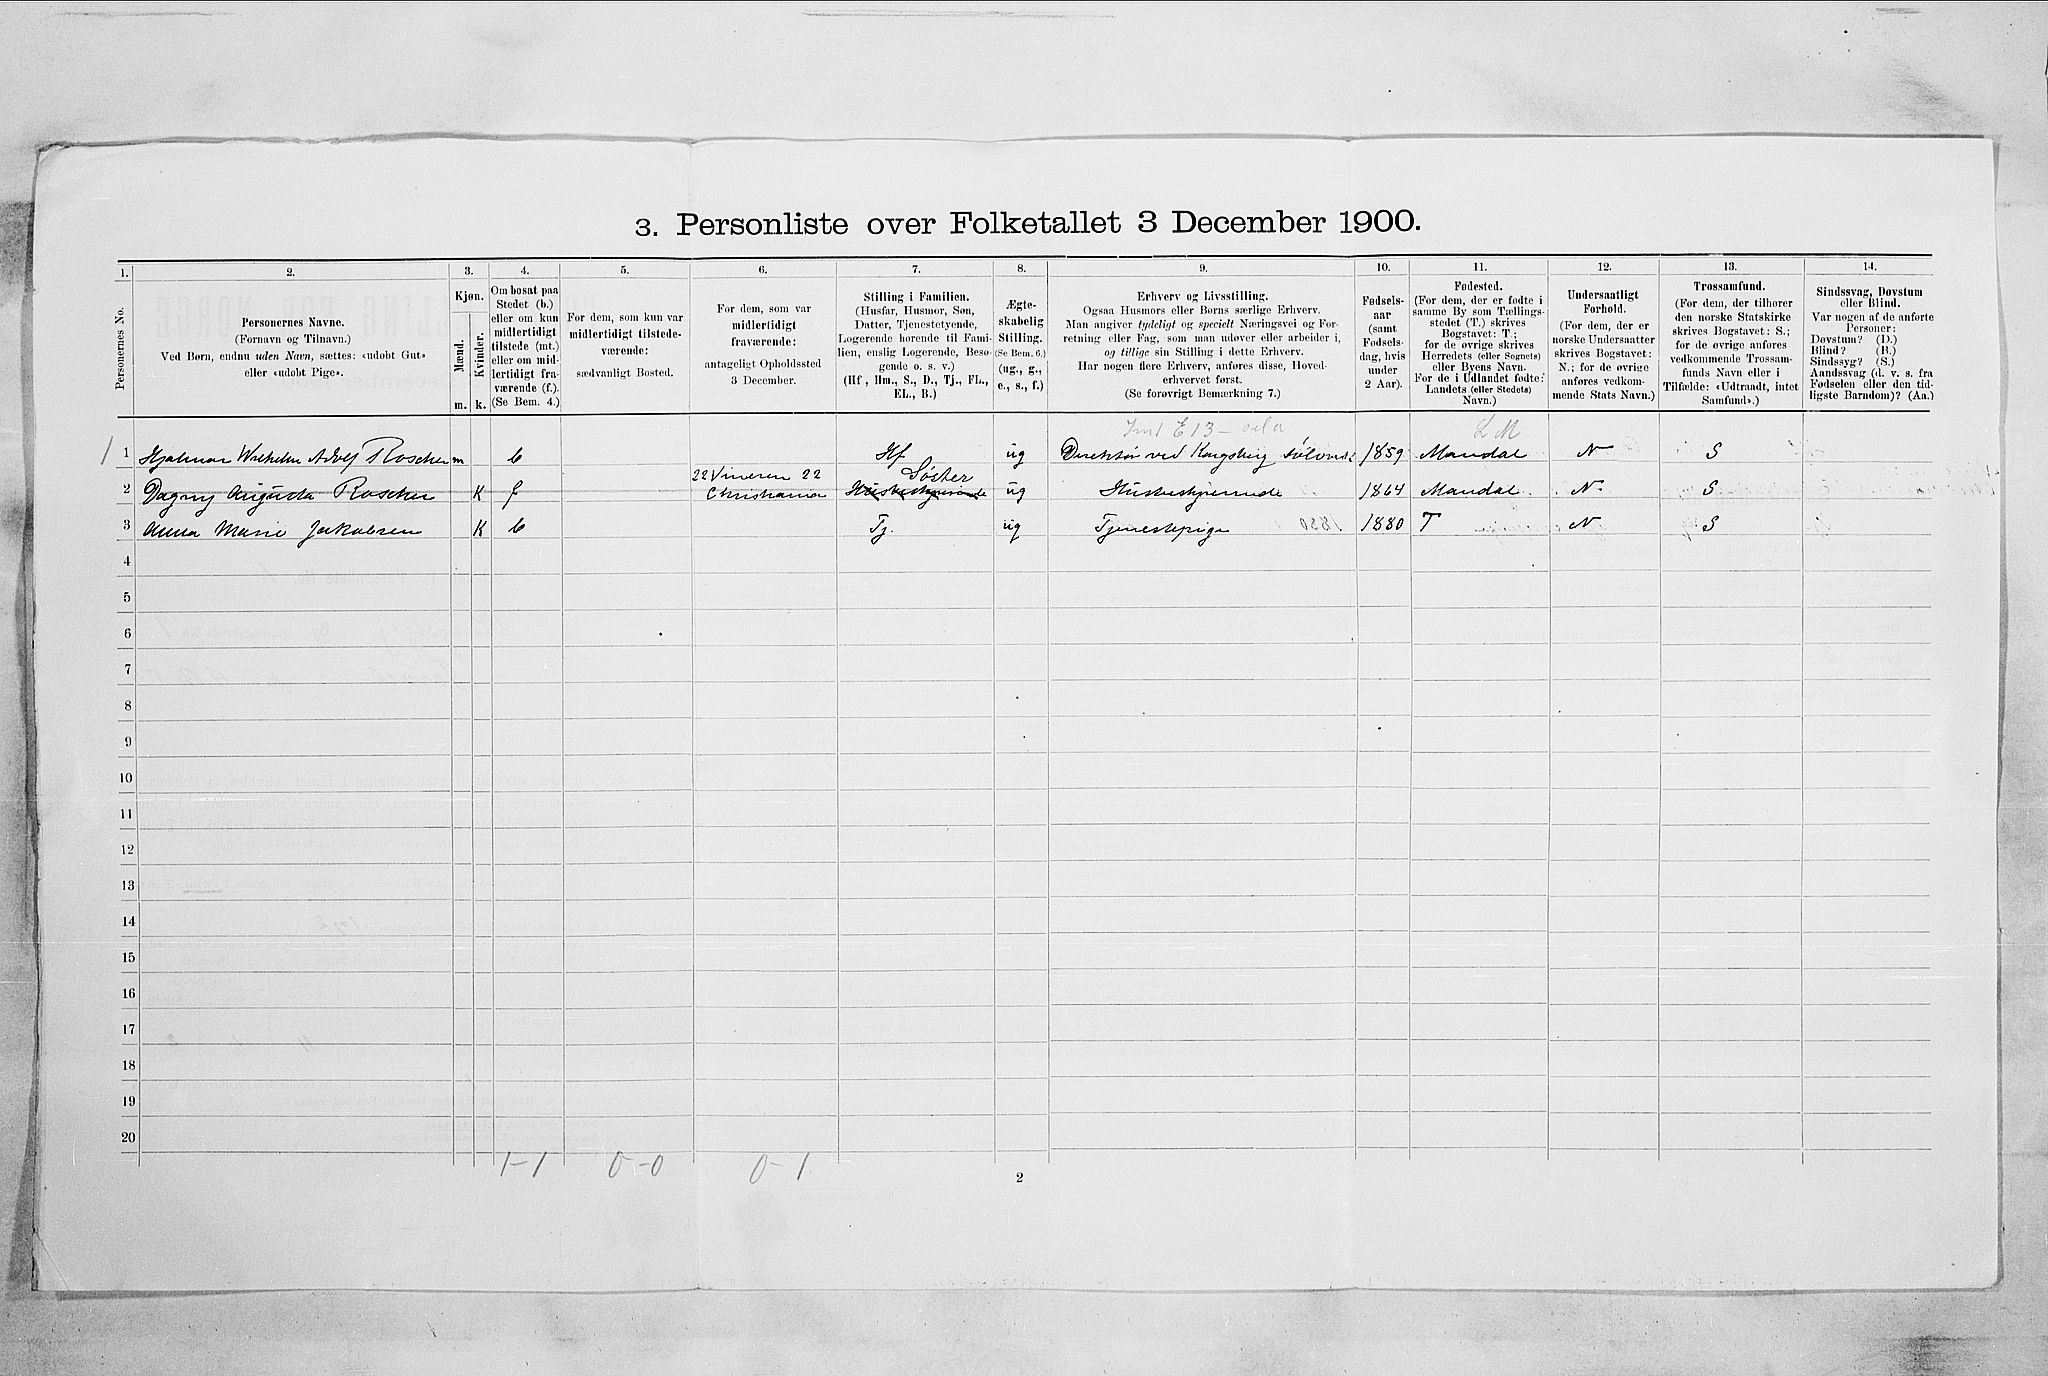 3. Personliste over Folketallet 3 December 1900.
1. 2. 3. 4. 5. 6. 7. 8. 9. 10. 11. 12. 13. 14.
Personernes No.
Personernes Navne.
(Fornavn og Tilnavn.)
Ved Børn, endnu uden Navn, sættes: «udøbt Gut»
eller «udøbt Pige».
Kjøn.
Mænd.
Kvinder.
m. k.
Om bosat paa
Stedet (b.)
eller om kun
midlertidigt
tilstede (mt.)
eller om mid-
lertidigt fra-
værende (f.)
(Se Bem. 4.)
For dem, som kun var
midlertidigt tilstede-
værende:
sædvanligt Bosted.
For dem, som var
midlertidigt
fraværende:
antageligt Opholdssted
3 December.
Stilling i Familien.
(Husfar, Husmor, Søn,
Datter, Tjenestetyende,
Logerende hørende til Fami-
lien, enslig Logerende, Besø-
gende o. s. v.)
(Hf , Hm., S., D., Tj., FL.,
EL., B.)
Ægte-
skabelig
Stilling.
(Se Bem. 6.)
(ug., g.,
e., s., f.)
Erhverv og Livsstilling.
Ogsaa Husmors eller Børns særlige Erhverv.
Man angiver tydeligt og specielt Næringsvei og For-
retning eller Fag, som man udøver eller arbeider i,
og tillige sin Stilling i dette Erhverv.
Har nogen flere Erhverv, anføres disse, Hoved-
erhvervet først.
(Se forøvrigt Bemærkning 7.)
Fødsels-
aar
(samt
Fødsels-
dag, hvis
under
2 Aar).
Fødested.
(For dem, der er fødte i
samme By som Tællings-
stedet (T.) skrives
Bogstavet: T ;
for de øvrige skrives
Herredets (eller Sognets)
eller Byens Navn.
For de i Udlandet fødte:
Landets (eller Stedets)
Navn.)
Undersaatligt
Forhold.
(For dem, der er
norske Undersaatter
skrives Bogstavet:
N.; for de øvrige
anføres vedkom-
mende Stats Navn.)
Trossamfund.
(For dem, der tilhører
den norske Statskirke
skrives Bogstavet: S.;
for de øvrige anføres
vedkommende Trossam-
funds Navn eller i
Tilfælde: «Udtraadt, intet
Samfund».)
Sindssvag, Døvstum
eller Blind.
Var nogen af de anførte
Personer:
Døvstum? (D.)
Blind? (B.)
Sindssyg? (S.)
Aandssvag (d. v. s. fra
Fødselen eller den tid-
ligste Barndom)? (Aa.)
E 13 L M
1 1 Hjalmar Wilhelm Adolf Roscher m b Hf ug Direktør ved Kongsberg Sølvverk 1859 Mandal N S
22 Vineren 22 Søster
2 Dagny Augusta Roscher K f Christiania Husbestyrerinde ug Husbestyrerinde 1864 Mandal N. S
3 Anna Marie Jakobsen K b Tj. ug Tjenestepige 1880 T N S
4
5
6
7
8
9
10
11
12
13
14
15
16
17
18
19
20
1-1 0-0 0-1
2